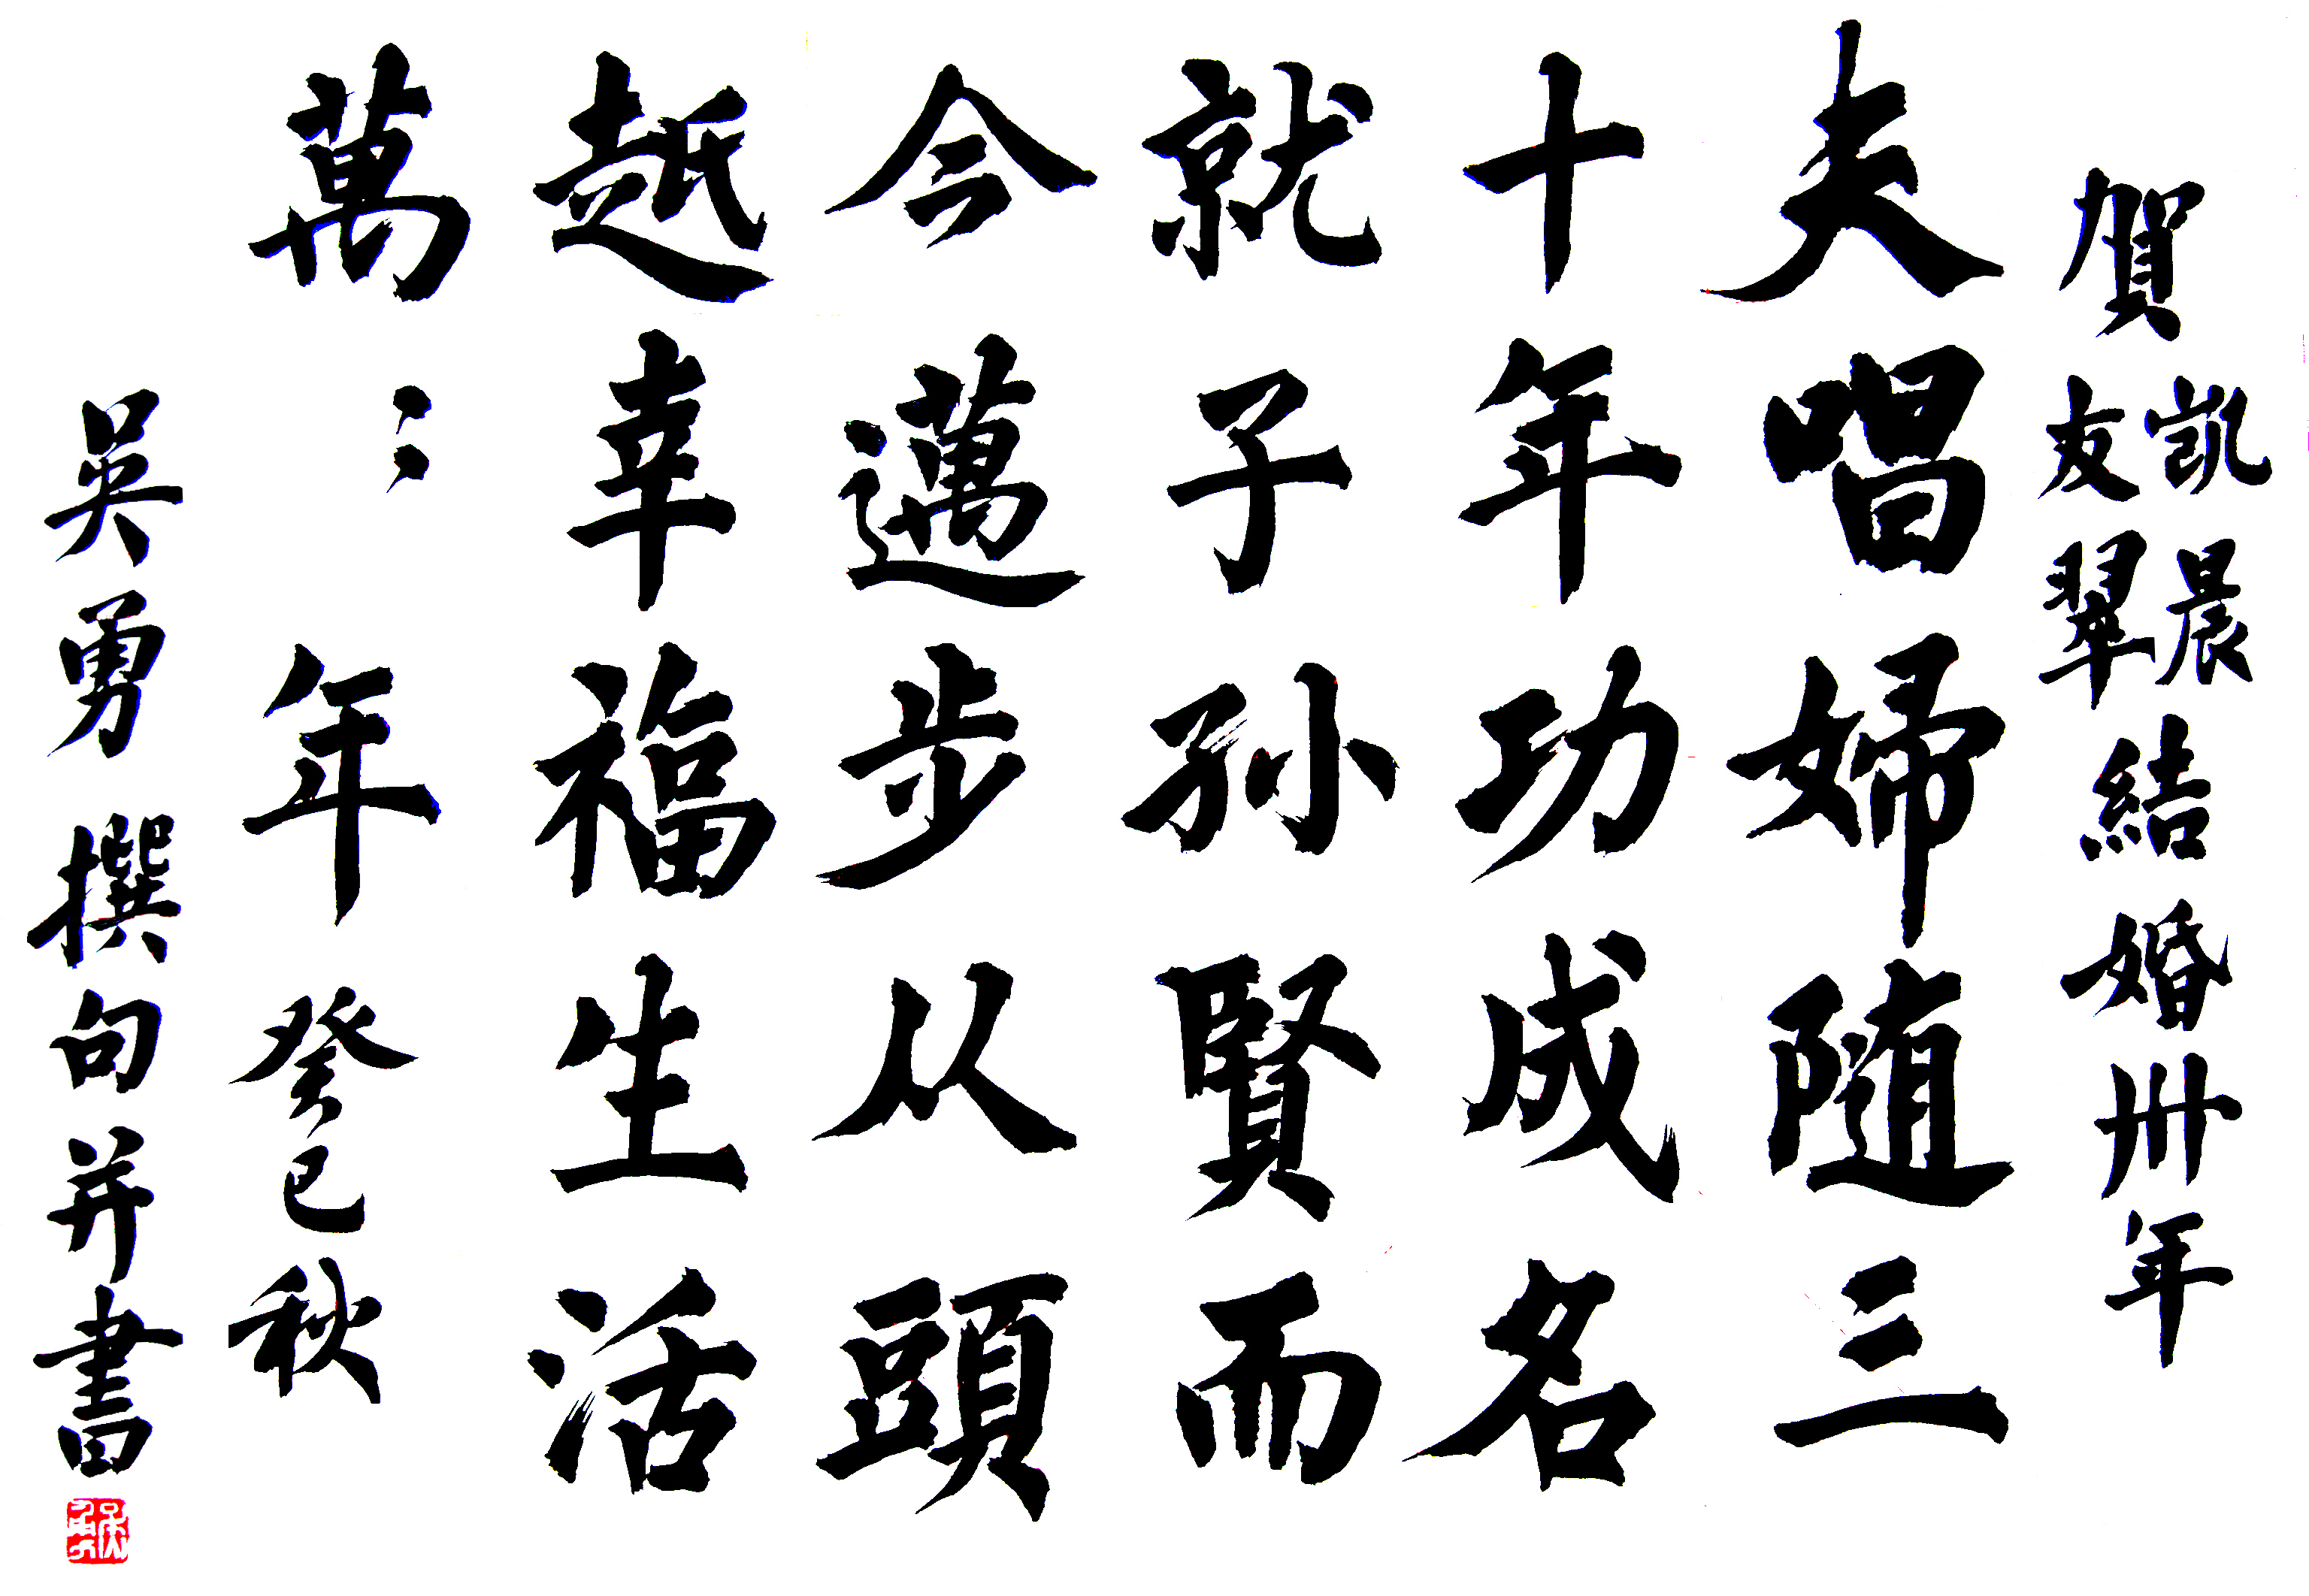 賀凱晨友翠結婚卅年
夫唱婦随三
十年功成名
就子孙賢而
今邁步从頭
越幸福生活
萬〻年癸巳秋
吴勇撰句并書
吴勇